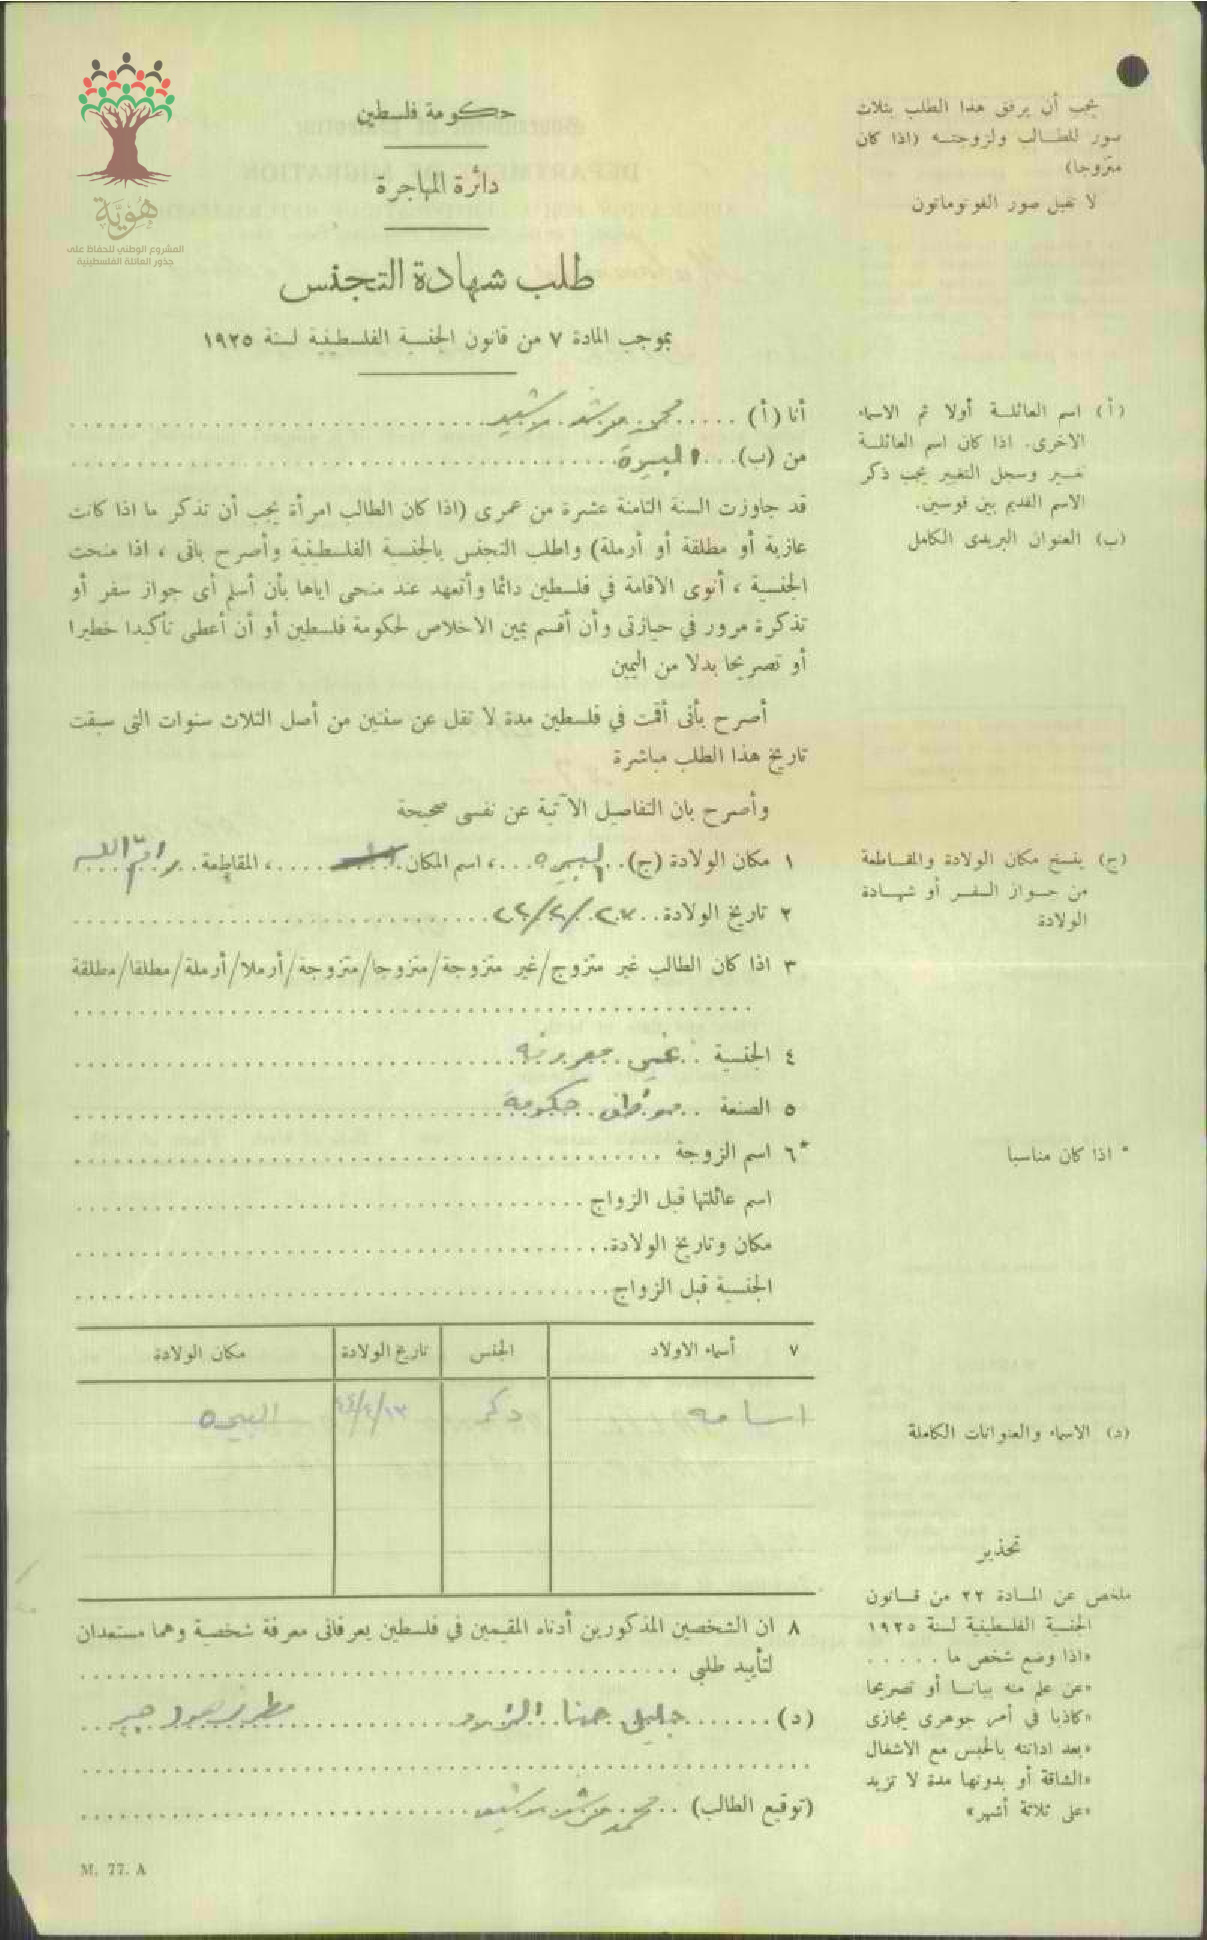 هُوِيَّة
المشروع الوطني للحفاظ على
جذور العائلة الفلسطينية
حكومة فلسطين
دائرة المهاجرة
طلب شهادة التجنس
بموجب المادة ٧ من قانون الجنسية الفلسطينية لسنة ١٩٢٥
يجب أن يرفق هذا الطلب بثلاث
صور للطالب ولزوجته (اذا كان
متزوجا)
لا تقبل صور الفوتوماتون
أنا (أ) محمد مرشد رشيد
من (ب) البيرة
قد جاوزت السنة الثامنة عشرة من عمرى (اذا كان الطالب امرأة يجب أن تذكر ما اذا كانت
عازبة أو مطلقة أو أرملة) واطلب التجنس بالجنسية الفلسطينية وأصرح بانى ، اذا منحت
الجنسية ، أنوى الاقامة في فلسطين دائما وأتعهد عند منحى اياها بأن أسلم أى جواز سفر أو
تذكرة مرور في حيازتى وأن أقسم يمين الاخلاص لحكومة فلسطين أو أن أعطى تأكيدا خطيرا
أو تصريحا بدلا من اليمين
أصرح بأنى أقمت في فلسطين مدة لا تقل عن سنتين من أصل الثلاث سنوات التى سبقت
تاريخ هذا الطلب مباشرة
وأصرح بان التفاصيل الآتية عن نفسى صحيحة
١ مكان الولادة (ج) البيره ، اسم المكان ، المقاطعة رام الله
٢ تاريخ الولادة
٣ اذا كان الطالب غير متزوج/غير متزوجة/متزوجا/متزوجة/أرملا/أرملة/مطلقا/مطلقة
٤ الجنسية غير معروفه
٥ الصنعة موظف حكومة
*٦ اسم الزوجة
اسم عائلتها قبل الزواج
مكان وتاريخ الولادة
الجنسية قبل الزواج
٧ أسماء الاولاد الجنس تاريخ الولادة مكان الولادة
اسامه ذكر ٤٤/٤/١٣ البيره
٨ ان الشخصين المذكورين أدناه المقيمين في فلسطين يعرفانى معرفة شخصية وهما مستعدان
لتأييد طلبي
(د) جليل حنا
(توقيع الطالب) محمد مرشد رشيد
M. 77. A
(أ) اسم العائلة أولا ثم الاسماء
الاخرى. اذا كان اسم العائلة
تغير وسجل التغيير يجب ذكر
الاسم القديم بين قوسين.
(ب) العنوان البريدى الكامل
(ج) ينسخ مكان الولادة والمقاطعة
من جواز السفر أو شهادة
الولادة
* اذا كان مناسبا
(د) الاسماء والعنوانات الكاملة
تحذير
ملخص عن المادة ٢٢ من قانون
الجنسية الفلسطينية لسنة ١٩٢٥
«اذا وضع شخص ما . . . . .
«عن علم منه بيانا أو تصريحا
«كاذبا في أمر جوهرى يجازى
«بعد ادانته بالحبس مع الاشغال
«الشاقة أو بدونها مدة لا تزيد
«على ثلاثة أشهر»